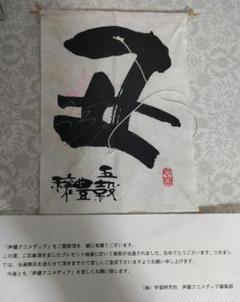 丑
五穀
豊穣
「声優アニメディア」をご愛読頂き、誠に有難うございます。
この度、ご応募頂きましたプレゼント抽選に於いて貴殿が当選されました。おめでとうございます。つきまし
ては、当選景品を送らせて頂きますので宜しくご査収下さいますようお願い申し上げます。
今後とも「声優アニメディア」を宜しくお願い致します。
(株)学習研究社 声優アニメディア編集部